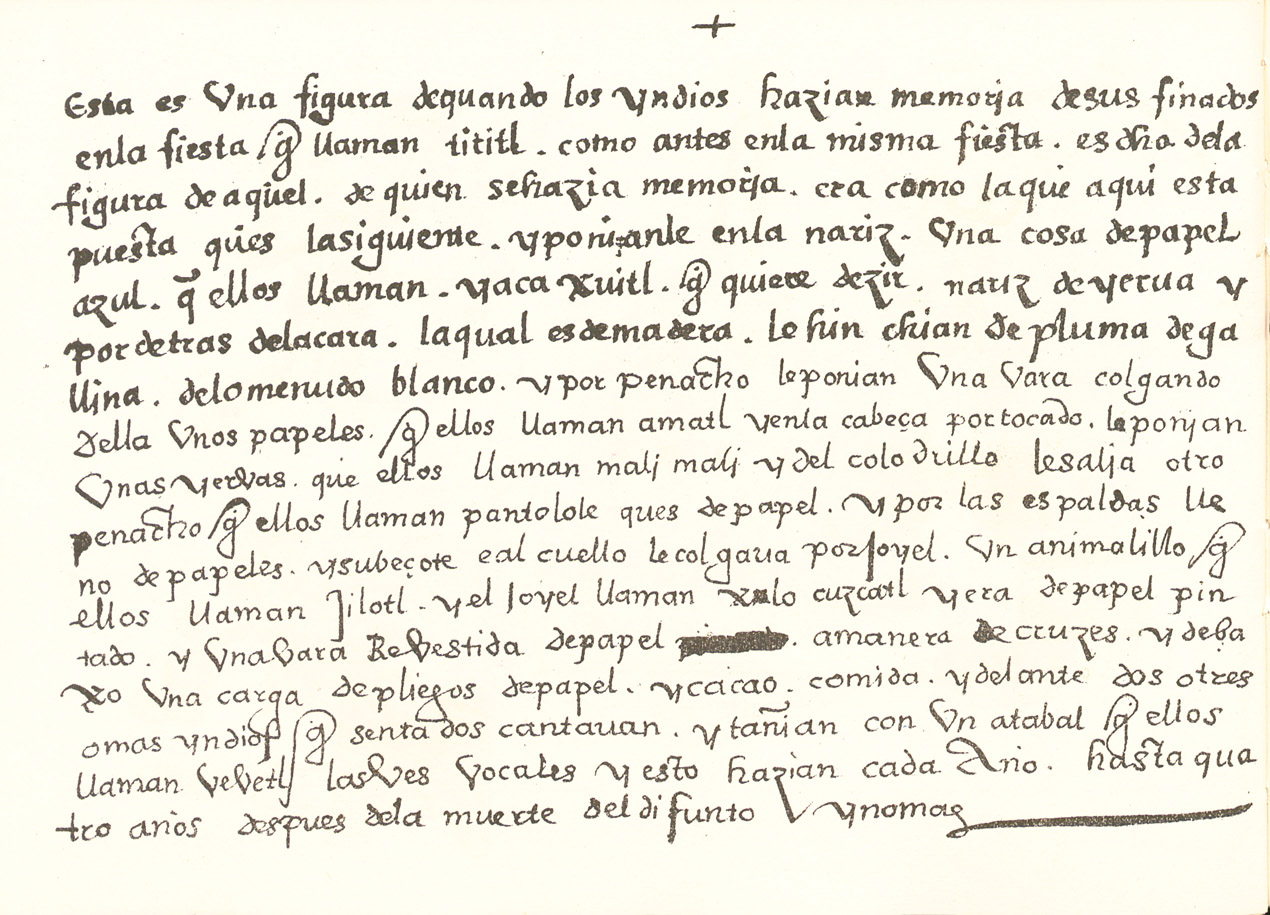 +
Esta es Una figura dequando los yndios hazian memoria desus finados
enla fiesta q̃ llaman tititl . como antes enla misma fiesta . es dho dela
figura de aquel . de quien sehazia memoria . era como laque aqui esta
puesta ques lasiguiente . yponianle enla nariz . Una cosa depapel
azul . q̃ ellos llaman . yaca xuitl . q̃ quiere dezir . nariz de yerua y
pordetras delacara . laqual esdemadera . le hin chian de pluma dega
llina . delomenudo blanco . y por penacho leponian Una Vara colgando
della Unos papeles . q̃ ellos llaman amatl yenla cabeça portocado . leponjan
Unas yervas . que ellos llaman malj malj y del colodrillo lesalja otro
penacho q̃ ellos llaman pantolole ques de papel . y por las espaldas lle
no de papeles . ysubeçote eal cuello lecolgaua porJoyel . Un animalillo q̃
ellos llaman Jilotl . yel Joyel llaman xolo cuzcatl yera depapel pin
tado . y UnaVara ReVestida depapel . amanera de cruzes . y deba
xo Una carga depliegos depapel . ycacao . comida . ydelante dos otres
omas yndios q̃ sentados cantauan . y tañian con Un atabal q̃ ellos
llaman VeVetl lasVes Vocales y esto hazian cada Año . hasta qua
tro años despues dela muerte deldifunto ynomas